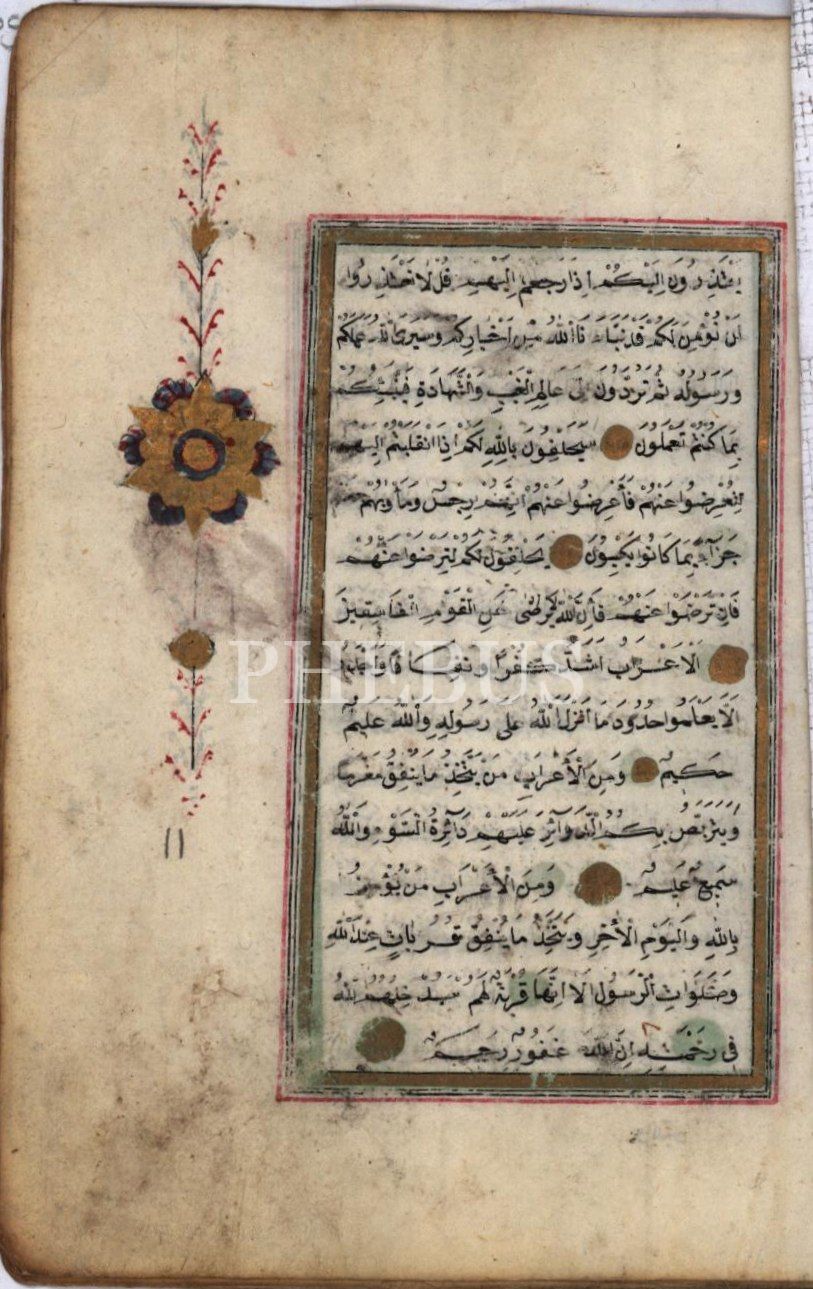 يَعْتَذِرُونَ اِلَيْكُمْ اِذَا رَجَعْتُمْ اِلَيْهِمْ قُلْ لَا تَعْتَذِرُوا
لَنْ نُؤْمِنَ لَكُمْ قَدْ نَبَّاَنَا اللّٰهُ مِنْ اَخْبَارِكُمْ وَسَيَرَى اللّٰهُ عَمَلَكُمْ
وَرَسُولُهُ ثُمَّ تُرَدُّونَ اِلٰى عَالِمِ الْغَيْبِ وَالشَّهَادَةِ فَيُنَبِّئُكُمْ
بِمَا كُنْتُمْ تَعْمَلُونَ سَيَحْلِفُونَ بِاللّٰهِ لَكُمْ اِذَا انْقَلَبْتُمْ اِلَيْهِمْ
لِتُعْرِضُوا عَنْهُمْ فَاَعْرِضُوا عَنْهُمْ اِنَّهُمْ رِجْسٌ وَمَأْوٰيهُمْ جَهَنَّمُ
جَزَاءً بِمَا كَانُوا يَكْسِبُونَ يَحْلِفُونَ لَكُمْ لِتَرْضَوْا عَنْهُمْ
فَاِنْ تَرْضَوْا عَنْهُمْ فَاِنَّ اللّٰهَ لَا يَرْضٰى عَنِ الْقَوْمِ الْفَاسِقِينَ
اَلْاَعْرَابُ اَشَدُّ كُفْرًا وَنِفَاقًا وَاَجْدَرُ
اَلَّا يَعْلَمُوا حُدُودَ مَا اَنْزَلَ اللّٰهُ عَلٰى رَسُولِهِ وَاللّٰهُ عَلِيمٌ
حَكِيمٌ وَمِنَ الْاَعْرَابِ مَنْ يَتَّخِذُ مَا يُنْفِقُ مَغْرَمًا
وَيَتَرَبَّصُ بِكُمُ الدَّوَائِرَ عَلَيْهِمْ دَائِرَةُ السَّوْءِ وَاللّٰهُ
سَمِيعٌ عَلِيمٌ وَمِنَ الْاَعْرَابِ مَنْ يُؤْمِنُ
بِاللّٰهِ وَالْيَوْمِ الْاٰخِرِ وَيَتَّخِذُ مَا يُنْفِقُ قُرُبَاتٍ عِنْدَ اللّٰهِ
وَصَلَوَاتِ الرَّسُولِ اَلَا اِنَّهَا قُرْبَةٌ لَهُمْ سَيُدْخِلُهُمُ اللّٰهُ
فِى رَحْمَتِهِ اِنَّ اللّٰهَ غَفُورٌ رَحِيمٌ
١١
PHEBUS